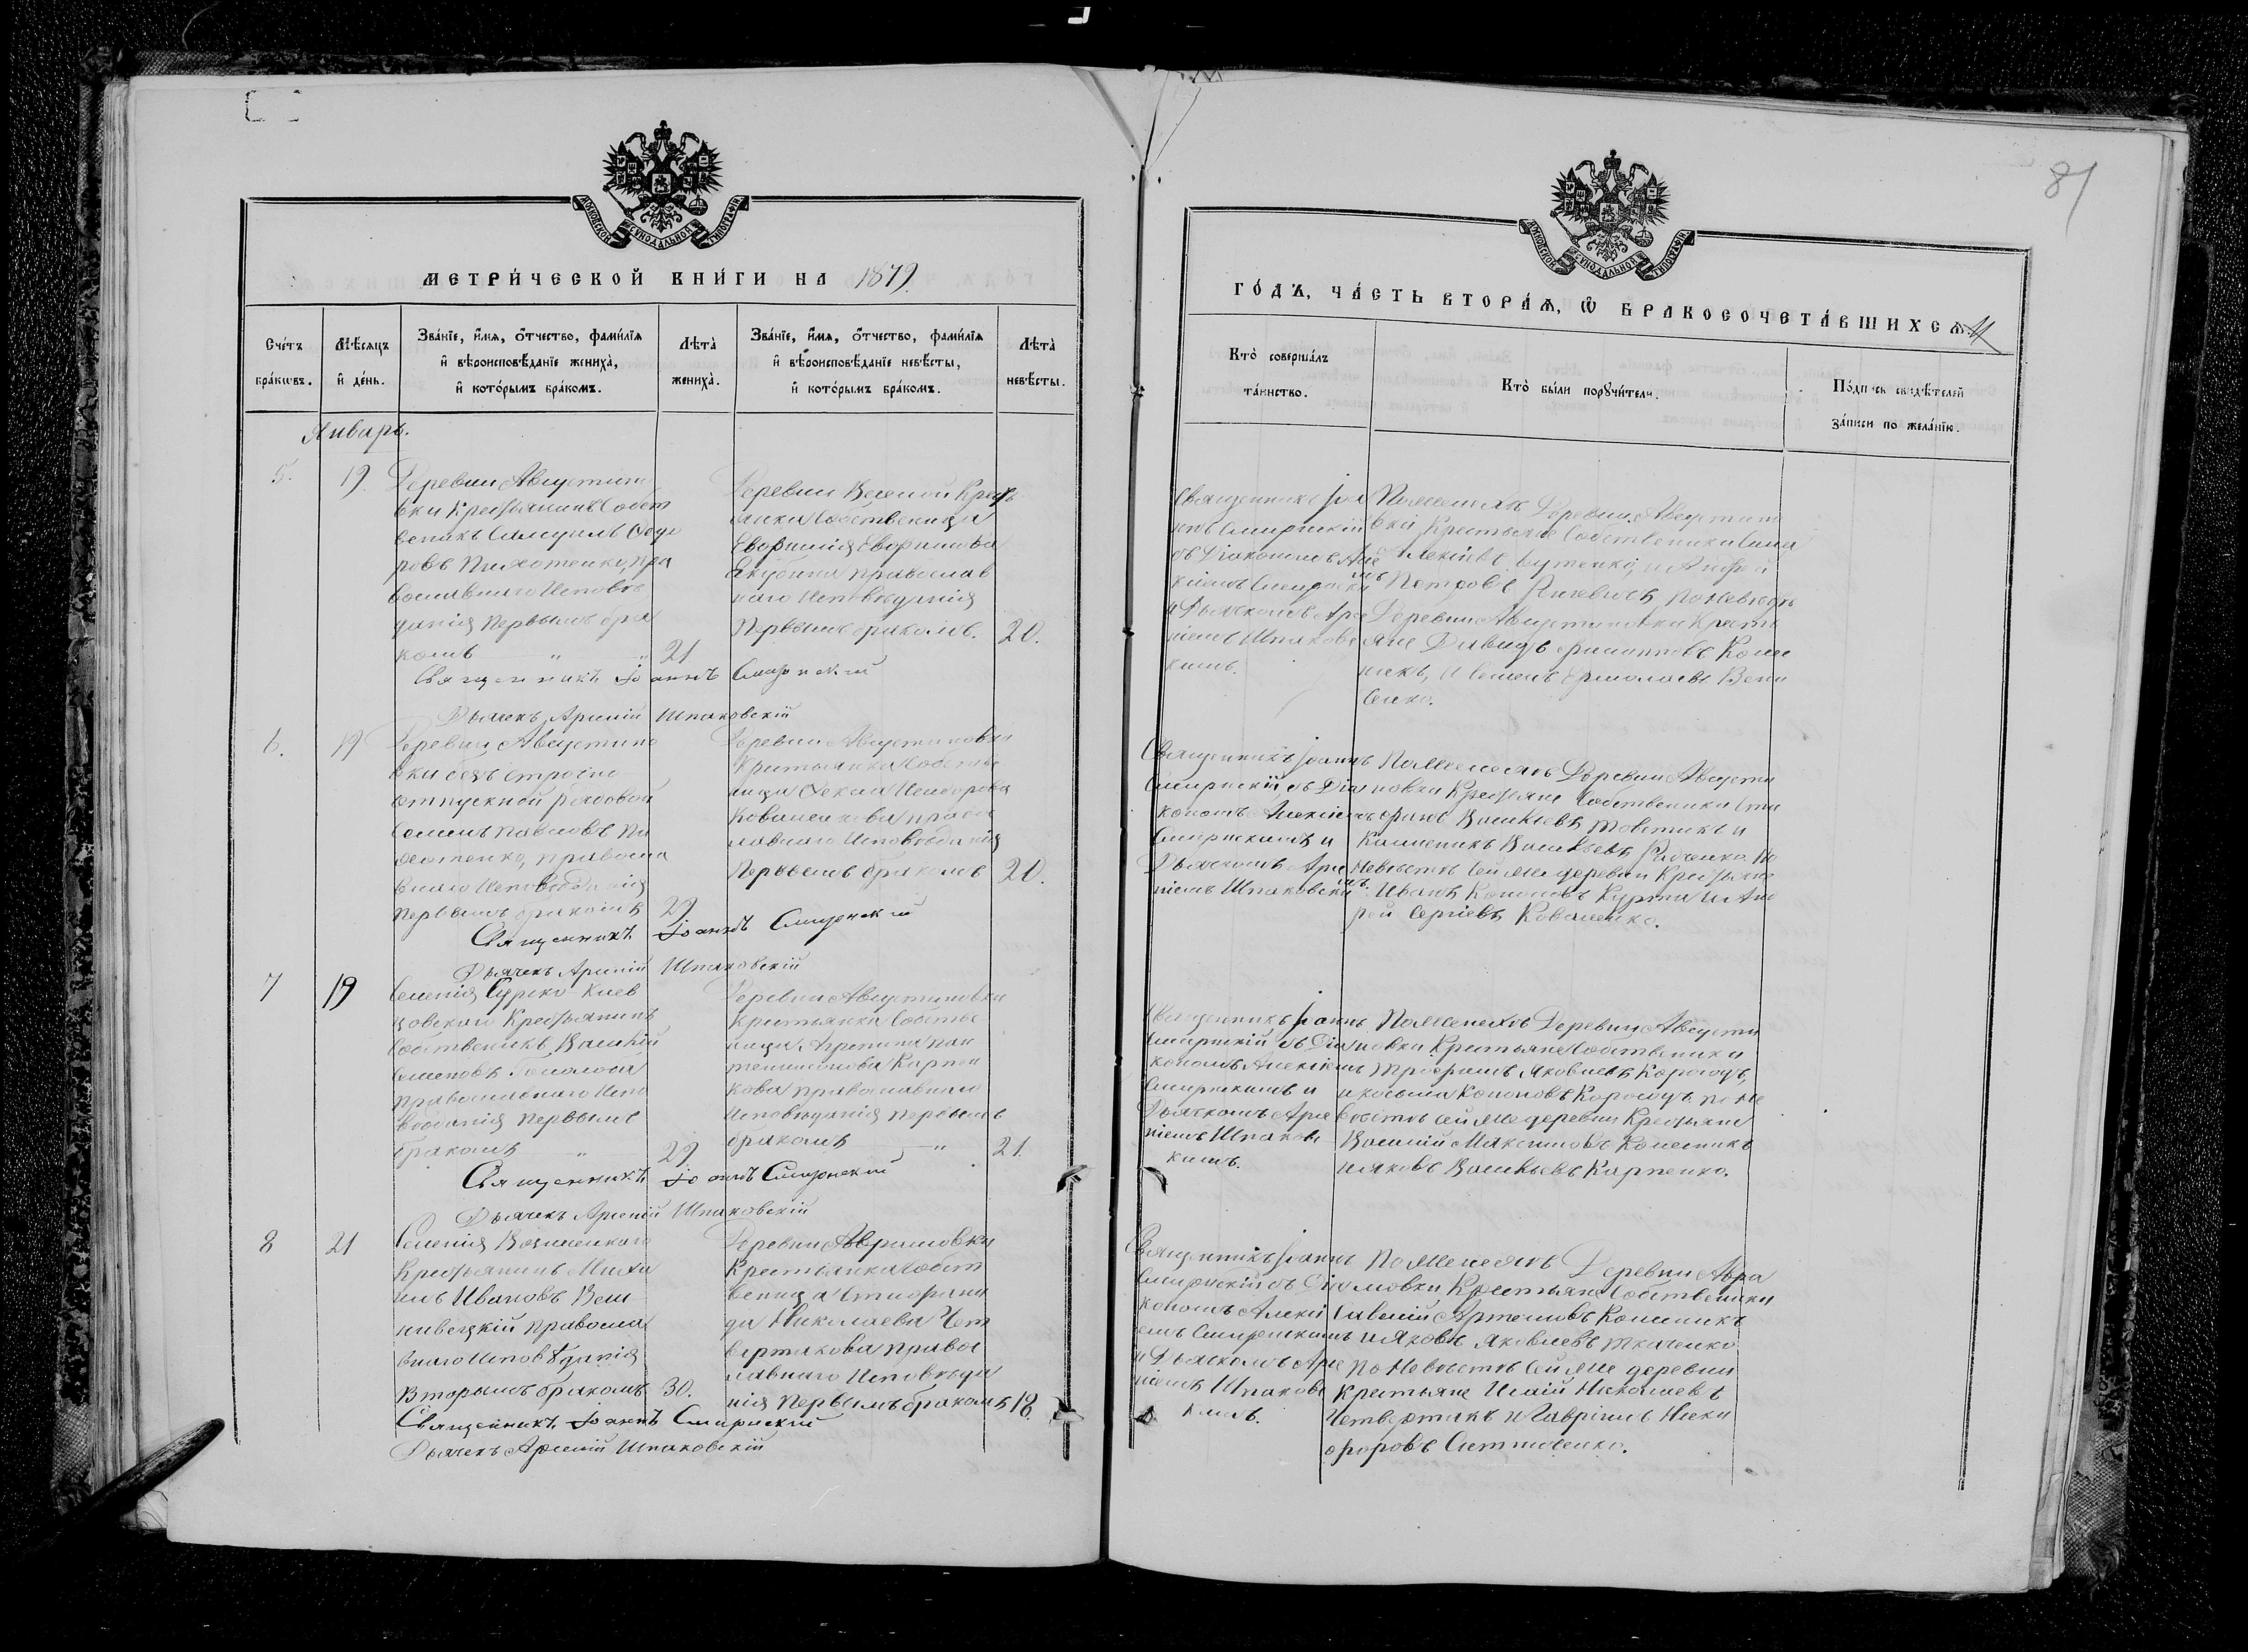 МОСКОВСКОЙ СѴНОДАЛЬНОЙ ТИПОГРАФІИ
МЕТРИ́ЧЕСКОЙ КНИ́ГИ НА 1879.
Сче́тъ бра́кѡвъ.
Мѣ́сяцъ и҆ де́нь.
Зва́нїе, и҆́мя, ѻ҆́тчество, фами́лїя
и҆ вѣроисповѣ́данїе жениха̀,
и҆ кото́рымъ бра́комъ.
Лѣта̀ жениха̀.
Зва́нїе, и҆́мя, ѻ҆́тчество, фами́лїя
и҆ вѣроисповѣ́данїе невѣ́сты,
и҆ кото́рымъ бра́комъ.
Лѣта̀ невѣ́сты.
Январь.
5.
19.
Деревни Августинов
ки Крестьянинъ Собст
веникъ Самуилъ Федо
ровъ Пихотенко, пра
вославнаго Исповѣ
данія первымъ бра
комъ " " 21
Деревни Веселой Кресть
янка Собственица
Евфимія Евфимова
православ
наго Исповѣданія
Первымъ бракомъ. 20.
Священникъ Іоаннъ Смирнскій
Дьячекъ Арсеній Шпаковскій
6.
19
Деревни Августинов
ки безъ срочно
отпускной рядовой
Семенъ Павловъ
православ
наго Исповѣданія
первымъ бракомъ 29
Деревни Августиновки
Крестьянка Собстве
ница Фекла Исидорова
Коваленкова право
славнаго Исповѣданія
Первымъ бракомъ 20.
Священникъ Іоаннъ Смирнскій
Дьячекъ Арсеній Шпаковскій
7
19
Селенія Сурско-Клев
цовскаго Крестьянинъ
Собственикъ Василій
Семеновъ
православнаго Испо
вѣданія первымъ
бракомъ " 29
Деревни Августиновки
Крестьянка Собстве
ница Агрепина Пан
телиимонова Карпен
кова православнаго
Исповѣданія первымъ
бракомъ " 21.
Священникъ Іоаннъ Смирнскій
Дьячекъ Арсеній Шпаковскій
8
21
Селенія Вознесенскаго
Крестьянинъ Миха
илъ Ивановъ Виш
нивецкій правосла
внаго Исповѣданія
вторымъ бракомъ 30.
Деревни Аврамовки
Крестьянка Собст
веница
да Николаева Чет
вертакова правос
лавнаго Исповѣда
нія первымъ бракомъ 18.
Священникъ Іоаннъ Смирнскій
Дьячекъ Арсеній Шпаковскій
81
МОСКОВСКОЙ СѴНОДАЛЬНОЙ ТИПОГРАФІИ
ГО́ДЪ, ЧА́СТЬ ВТОРА́Ѧ, Ѽ БРАКОСОЧЕТА́ВШИХСѦ.
Кто̀ соверша́лъ
та́инство.
Кто̀ бы́ли порꙋчи́тели.
По́дпись свидѣ́телей
за́писи по жела́нїю.
Священникъ Іоа
ннъ Смирнскій
съ Діакономъ Але
ксіемъ Смирнскимъ
и Дьячкомъ Арсе
ніемъ Шпаковс
кимъ.
По Женихѣ Деревни Августинов
ки Крестьяне Собственики
Алексіевъ Бутенко, и
Петровъ по Невѣстѣ
Деревни Августиновки Кресть
яне Давидъ Филипповъ Колес
никъ, и Семенъ Ермолаевъ
Священникъ Іоаннъ
Смирнскій съ Діа
кономъ Алексіемъ
Смирнскимъ и
Дьячкомъ Арсе
ніемъ Шпаковскимъ.
По Женихѣ Деревни Августи
новки Крестьяне Собственики
Васильевъ Товстикъ и
Васильевъ Радченко. По
Невѣстѣ сей же деревни Крестьяне
Иванъ Кононовъ Курта и Анд
рей Сергіевъ Коваленко.
Священникъ Іоаннъ
Смирнскій съ Діа
кономъ Алексіемъ
Смирнскимъ и
Дьячкомъ Арсе
ніемъ Шпаковс
кимъ.
По Женихѣ Деревни Августи
новки Крестьяне Собственики
Трофимъ Яковлевъ Корогодъ,
Кононовъ Корогодъ. по Не
вѣстѣ сей же деревни Крестьяне
Василій Максимовъ Колесникъ
и Яковъ Васильевъ Карпенко.
Священникъ Іоаннъ
Смирнскій съ Діа
кономъ Алексі
емъ Смирнскимъ
и Дьячкомъ Арсе
ніемъ Шпаковс
кимъ.
По Женихѣ Деревни Авра
мовки Крестьяне Собственики
Савелій Артемовъ Колесникъ
и Яковъ Яковлевъ Ткаченко
по Невѣстѣ сей же деревни
Крестьяне Илій Николаевъ
Четвертакъ и Гавріилъ Ники
форовъ Ситниченко.